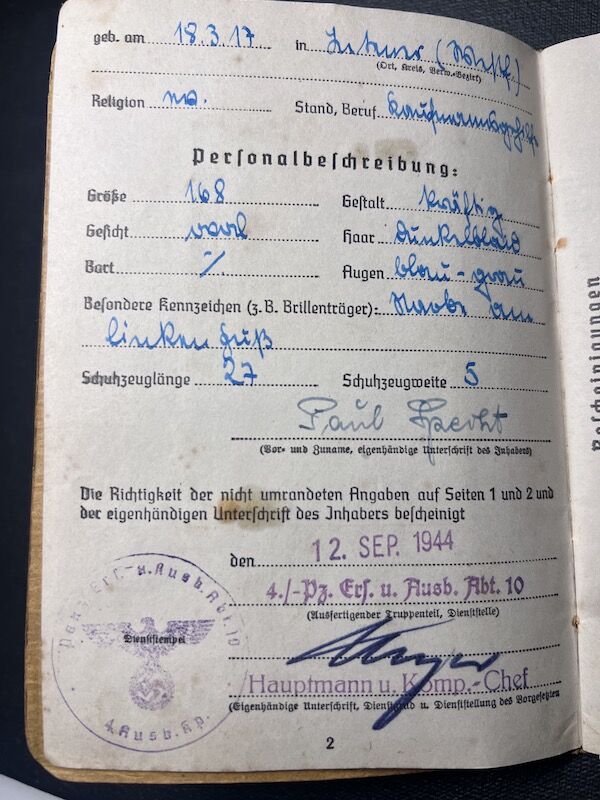 geb. am 18.3.17 in (Westf.)
(Ort, Kreis, Verw.-Bezirk)
Religion ev. Stand, Beruf Kaufmannsgehilfe
Personalbeschreibung:
Größe 168 Gestalt kräftig
Gesicht oval Haar dunkelblond
Bart ./. Augen blau-grau
Besondere Kennzeichen (z.B. Brillenträger): Narbe am
linken Fuß
Schuhzeuglänge 27 Schuhzeugweite 5
Paul Specht
(Vor- und Zuname, eigenhändige Unterschrift des Inhabers)
Die Richtigkeit der nicht umrandeten Angaben auf Seiten 1 und 2 und
der eigenhändigen Unterschrift des Inhabers bescheinigt
den 12. SEP. 1944
4./-Pz. Ers. u. Ausb. Abt. 10
(Ausfertigender Truppenteil, Dienststelle)
Ers.- u. Ausb. Abt. 10
Dienststempel
4. Ausb. Kp.
Hauptmann u. Komp.-Chef
(Eigenhändige Unterschrift, Dienstgrad u. Dienststellung des Vorgesetzten
2
Bescheinigungen